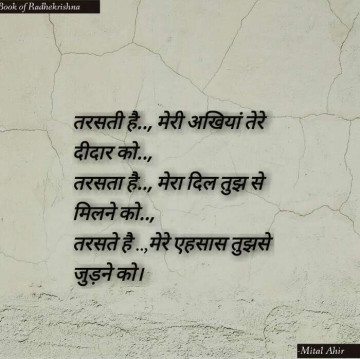 Book of Radhekrishna
तरसती है.., मेरी अखियां तेरे
दीदार को..,
तरसता है.., मेरा दिल तुझ से
मिलने को..,
तरसते है ..,मेरे एहसास तुझसे
जुड़ने को।
-Mital Ahir